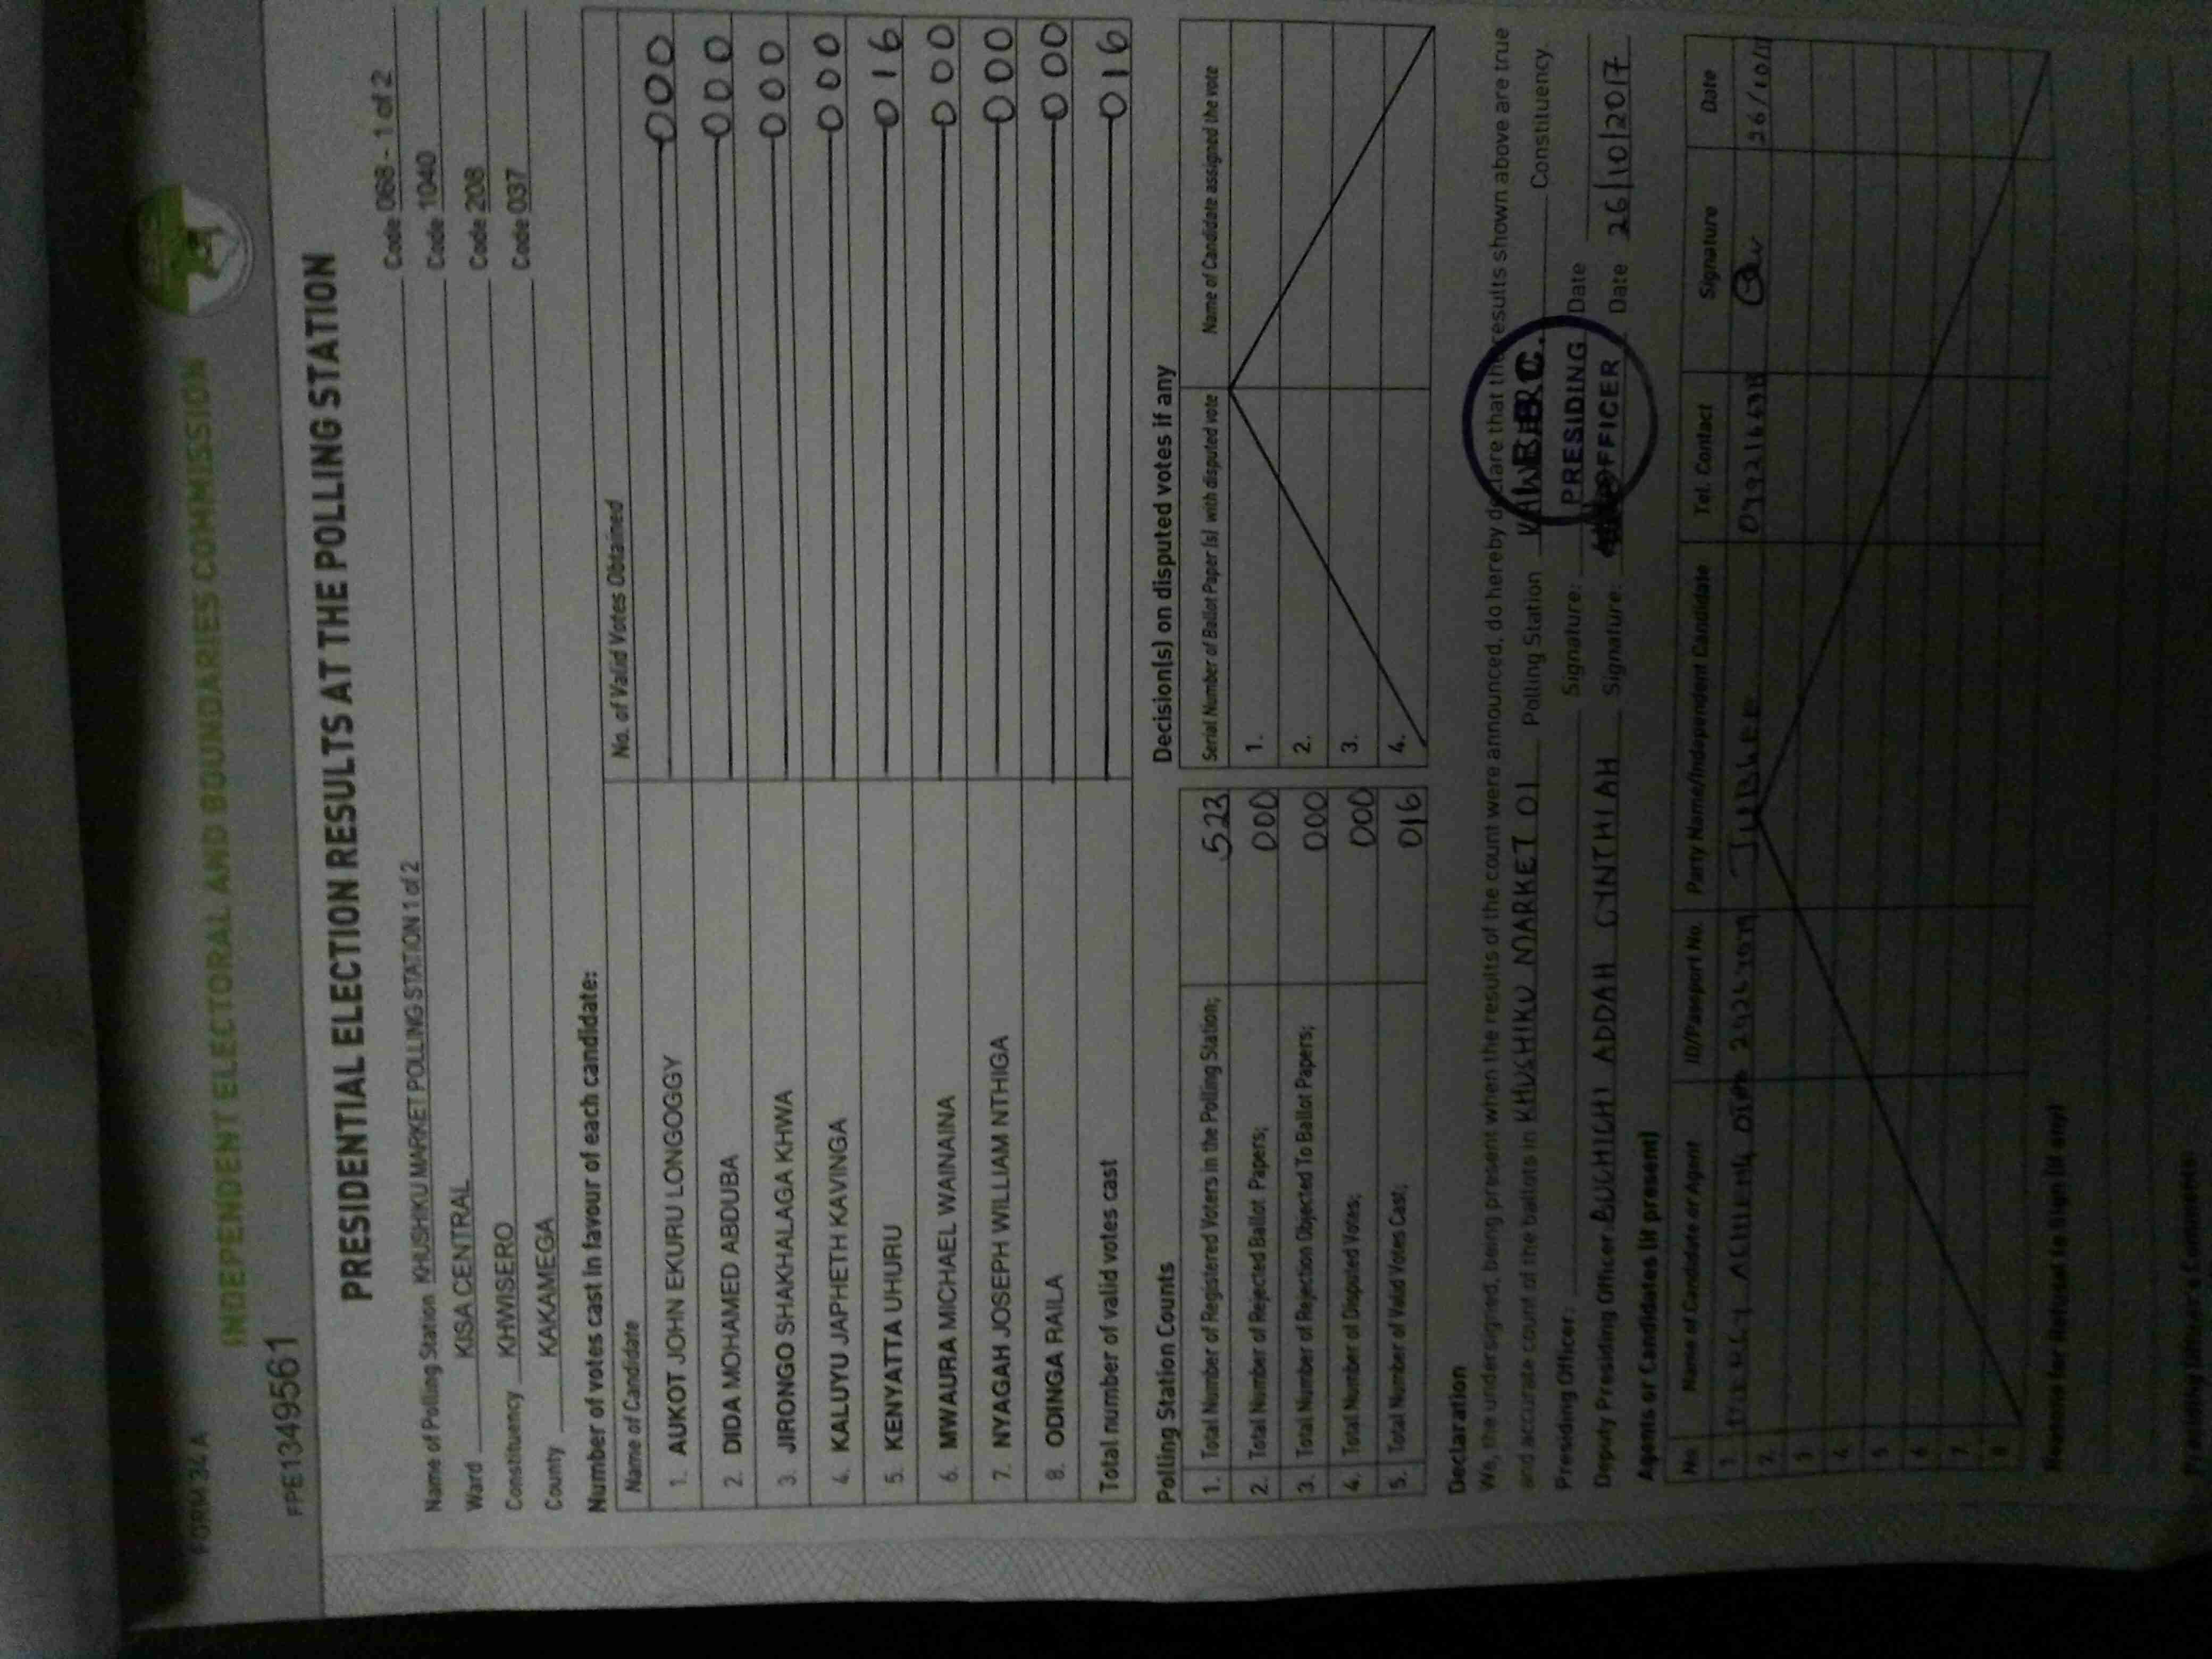 FORM 34 A
INDEPENDENT ELECTORAL AND BOUNDARIES COMMISSION
FPE1349561
PRESIDENTIAL ELECTION RESULTS AT THE POLLING STATION
Name of Polling Station KHUSHIKU MARKET POLLING STATION 1 of 2 Code 068 - 1 of 2
Ward KISA CENTRAL Code 1040
Constituency KHWISERO Code 208
County KAKAMEGA Code 037
Number of votes cast in favour of each candidate:
Name of Candidate No. of Valid Votes Obtained
1. AUKOT JOHN EKURU LONGOGGY 000
2. DIDA MOHAMED ABDUBA 000
3. JIRONGO SHAKHALAGA KHWA 000
4. KALUYU JAPHETH KAVINGA 000
5. KENYATTA UHURU 016
6. MWAURA MICHAEL WAINAINA 000
7. NYAGAH JOSEPH WILLIAM NTHIGA 000
8. ODINGA RAILA 000
Total number of valid votes cast 016
Polling Station Counts
1. Total Number of Registered Voters in the Polling Station; 522
2. Total Number of Rejected Ballot Papers; 000
3. Total Number of Rejection Objected To Ballot Papers; 000
4. Total Number of Disputed Votes; 000
5. Total Number of Valid Votes Cast; 016
Decision(s) on disputed votes if any
Serial Number of Ballot Paper (s) with disputed vote Name of Candidate assigned the vote
1.
2.
3.
4.
Declaration
We, the undersigned, being present when the results of the count were announced, do hereby declare that the results shown above are true
and accurate count of the ballots in KHUSHIKU MARKET 01 Polling Station Constituency
Presiding Officer: Signature: Date
Deputy Presiding Officer BUCHICHI ADDAH CYNTHIAH Signature: Date 26/10/2017
PRESIDING
OFFICER
Agents or Candidates (if present)
No. Name of Candidate or Agent ID/Passport No. Party Name/Independent Candidate Tel. Contact Signature Date
1. JUBILEE 26/10/17
2.
3
4.
5
6
7.
8
Reasons for Refusal to Sign (if any)
Presiding Officer's Comments: